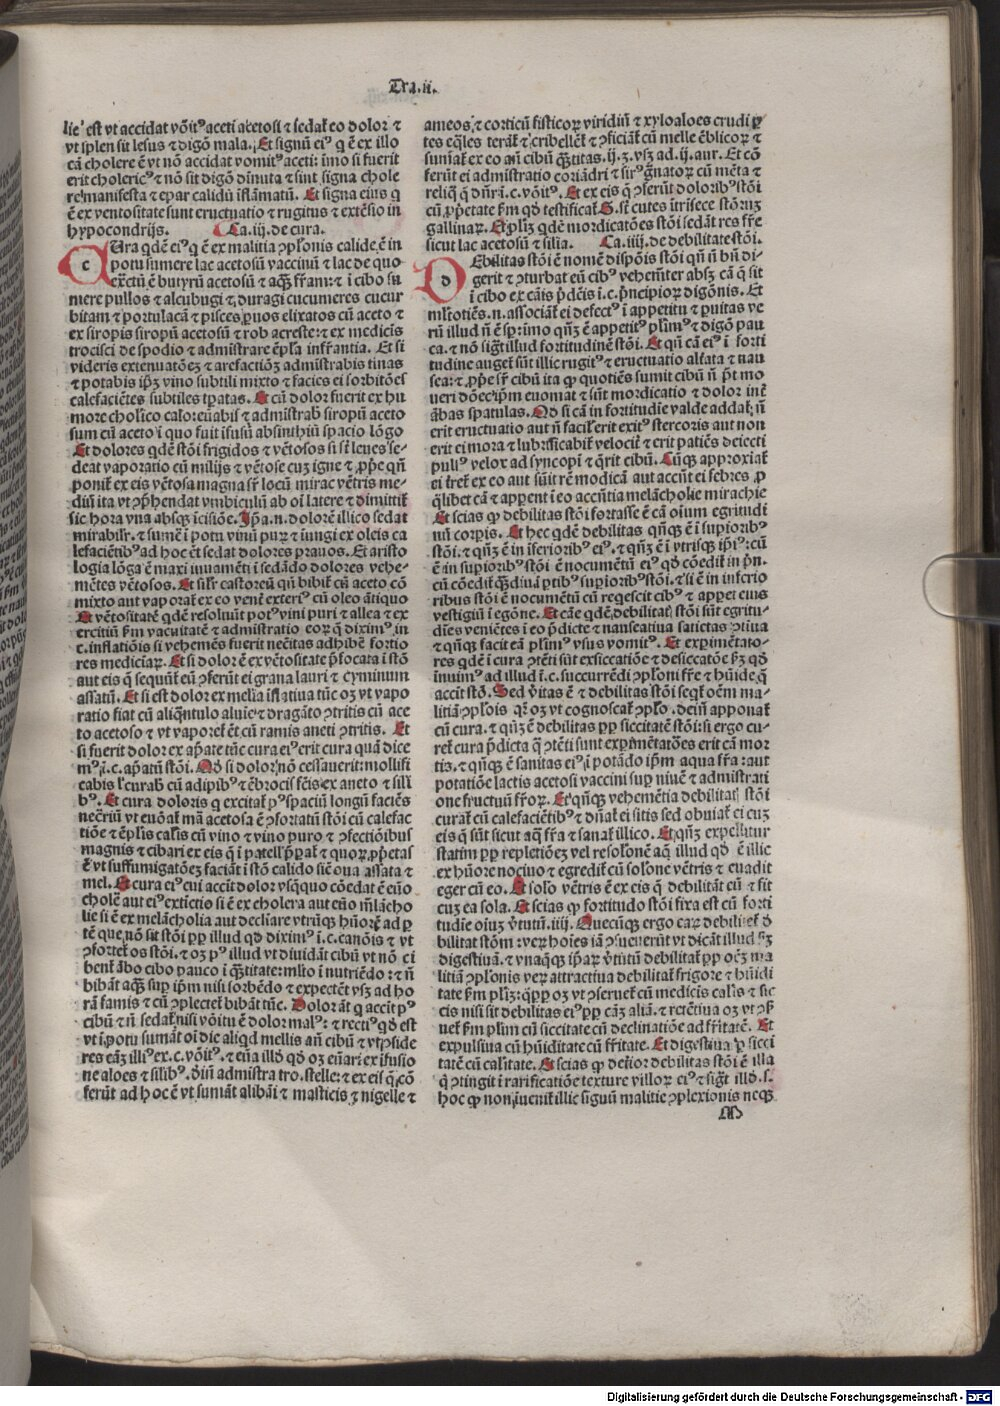 Tra.ii.
lie' est vt accidat võitꝰ aceti acetosi ⁊ sedat̃ eo dolor ⁊
vt splen sit lesus ⁊ digõ mala. Et signũ eiꝰ q̃ ẽ ex illo
cã cholere ẽ vt nõ accidat vomitꝰ aceti: imo si fuerit
erit cholericꝰ ⁊ nõ sit digõ dĩnuta ⁊ sint signa chole
re manifesta ⁊ epar calidũ iflãmatũ. Et signa eius q̃
ẽ ex ventositate sunt eructuatio ⁊ rugitus ⁊ extẽsio in
hypocondrijs. Ca.iij. de cura.
c Ura qdẽ eiꝰ q̃ ẽ ex malitia ꝯplonis calide, ẽ in
potu sumere lac acetosũ vaccinũ ⁊ lac de quo
exctũ ẽ butyrũ acetosũ ⁊ aq̃ fr̃am: ⁊ i cibo su
mere pullos ⁊ alcubugi ⁊ duragi cucumeres cucur
bitam ⁊ portulacã ⁊ pisces paruos elixatos cũ aceto ⁊
ex siropis siropũ acetosũ ⁊ rob acreste: ⁊ ex medicis
trocisci de spodio ⁊ admistrare ẽpla infr̃antia. Et si
videris extenuatõez ⁊ arefactiõz admistrabis tinas
⁊ potabis ipz vino subtili mixto ⁊ facies ei sorbitões
calefaciẽtes subtiles tp̃atas. Et cũ dolor fuerit ex hu
more cholico calor: euabis ⁊ admistrab siropũ aceto
sum cũ aceto i quo fuit ifusũ absinthiũ spacio lõgo
Et dolores qdẽ stõi frigidos ⁊ vẽtosos si st̃ leues se-
deat vaporatio cũ milijs ⁊ vẽtose cuz igne ⁊ ꝓpe qñ
ponit̃ ex eis vẽtosa magna sr̃ locũ mirac vẽtris me-
diũ ita vt ꝯp̃hendat vmbiculũ ab oĩ latere ⁊ dimittit̃
sic hora vna absqꝫ icisiõe. Ip̃a.n. dolorẽ illico sedat
mirabilr̃. ⁊ sumẽ i potu vinũ pur̃ ⁊ iungi ex oleis ca
lefaciẽtibꝰ ad hoc ẽt sedat dolores prauos. Et aristo
logia lõga ẽ maxi iuuamẽti i sedãdo dolores vehe-
mẽtes vẽtosos. Et silr̃ castoreũ qñ bibit̃ cũ aceto cõ
mixto aut vaporat̃ ex eo vent̃ exteriꝰ cũ oleo ãtiquo
Et vẽtositatẽ qdẽ resoluũt potꝰ vini puri ⁊ allea ⁊ ex
ercitiũ p̃m vacuitatẽ ⁊ admistratio eoꝝ q̃ diximꝰ in
c. inflatiõis si vehemẽs fuerit necĩtas adhibẽ fortio
res mediciaꝝ. Et si dolor ẽ ex vẽtositate p̃focata i stõ
aut eis q̃ sequũt̃ eũ ꝯferũt ei grana lauri ⁊ cyminum
assatũ. Et si est dolor ex melĩa iflatiua tũc oꝫ vt vapo
ratio fiat cũ aliqntulo aluie ⁊ dragãto ꝯtritis cũ ace
to acetoso ⁊ vt vaporet̃ ẽt cũ ramis aneti ꝯtritis. Et
si fuerit dolor ex ap̃ate tũc cura eiꝰ erit cura quã dice
mꝰ i.c. ap̃atũ stõi. Qd si dolor nõ cessauerit: mollifi
cabis l̃ curab̃ cũ adipibꝰ ⁊ ẽbrocis fẽis ex aneto ⁊ sill̃
bꝰ. Et cura doloris q̃ excitat̃ pꝰ spaciũ longũ faciẽs
necr̃iũ vt euõat̃ mã acetosa ẽ ꝯfortatũ stõi cũ calefac
tiõe ⁊ ẽplis calis cũ vino ⁊ vino puro ⁊ ꝯfectiõibus
magnis ⁊ cibari ex eis q̃ i patell̃ p̃pat̃ ⁊ quoꝝ ꝓp̃etas
ẽ vt suffumigatõez faciãt i stõ calido siẽ oua assata ⁊
mel. Et cura eiꝰ cui accit dolor vsq̃quo cõedat ẽ eũo
cholẽ aut eiꝰ extĩctio si ẽ ex cholera aut eũo mlãcho
lie si ẽ ex melãcholia aut declĩare vtrũqꝫ hũorẽ ad p
tẽ que nõ sit stõi pp illud qd diximꝰ i.c. canõis ⁊ vt
ꝯfortet̃ os stõi. ⁊ oꝫ pꝰ illud vt diuidãt cibũ vt nõ ci
bent̃ ãbo cibo pauco i q̃titate: mlto i nutriẽdo: ⁊ ñ
bibãt aq̃z sup ip̃m nisi sorbẽdo ⁊ expectẽt vsqꝫ ad ho
rã famis ⁊ cũ ꝯplectet̃ bibãt tũc. Dolor ãt q̃ accit pꝰ
cibũ ⁊ ñ sedat̃ nisi võitu ẽ dolor malꝰ: ⁊ rectiꝰ qd est
vt i potu sumãt oi die aliqd mellis añ cibũ ⁊ vt ꝯside
res eãz illiꝰ ex.c. võitꝰ. ⁊ eũa illd qd oꝫ eũari ex ifusio
ne aloes ⁊ silibꝰ. dĩũ admistra tro. stelle: ⁊ ex eis q̃ cõ
ferũt ad hoc ẽ vt sumãt alibãi ⁊ masticis ʒ nigelle ⁊
ameos, ⁊ corticũ fisticoꝝ viridiũ ⁊ xyloaloes crudi p
tes eq̃les terãt̃ ⁊ cribellẽt̃ ⁊ ꝯficiãt̃ cũ melle ẽblicoꝝ ⁊
sumãt̃ ex eo añ cibũ q̃titas. ij.ʒ. vsqꝫ ad .ij. aur. Et cõ
ferũt ei admistratio coriãdri ⁊ sirꝰ g̃natoꝝ cũ mẽta ⁊
reliq̃ q̃ dñr̃ i.c. võitꝰ. Et ex eis q̃ ꝯserũt doloribꝰ stõi
cũ ꝓp̃etate p̃m qd testificat̃ G. st̃ cutes ĩtrisece stõruz
gallinaꝝ. Et plĩz qdẽ mordicatões stõi sedãt res fr̃e
sicut lac acetosũ ⁊ silia. Ca.iiij. de debilitate stõi.
D Ebilitas stõi ẽ nomẽ dispõis stõi qñ ñ bñ di-
gerit ⁊ ꝯturbat eũ cibꝰ vehemẽter absqꝫ cã q̃ sit
i cibo ex cãis p̃dẽis i.c. p̃ncipioꝝ digõnis. Et
mltotiẽs.n. associat̃ ei defectꝰ i appetitu ⁊ puitas ve
rũ illud ñ ẽ sp: imo qñqꝫ ẽ appetitꝰ plĩmꝰ ⁊ digõ pau
ca. ⁊ nõ sig̃t illud fortitudinẽ stõi. Et qñ cã eiꝰ ĩ forti
tudine auget̃ sũt illic rugitꝰ ⁊ eructuatio altata ⁊ nau
sea: ⁊ ꝓpe sr̃ cibũ ita ꝙ quotiẽs sumit cibũ ñ p̃t mo
ueri dõec ip̃m euomat ⁊ sũt mordicatio ⁊ dolor int̃
ãbas spatulas. Qd si cã in fortitudĩe valde addat̃: ñ
erit eructuatio aut ñ facilr̃ erit exitꝰ stercoris aut non
erit ei mora ⁊ lubrificabit̃ velocit̃ ⁊ erit patiẽs deiecti
pulsꝰ velox ad syncopi ⁊ q̃rit cibũ. Cũqꝫ approxiat̃
ei tret̃ ex eo aut sũit rẽ modicã aut accũt ei febres ꝓ
q̃libet cã ⁊ apparent i eo accñtia melãcholie mirachie
Et scias ꝙ debilitas stõi fortasse ẽ cã oium egritudi
nũ corpis. Et hec qdẽ debilitas qñqꝫ ẽ i supioribꝰ
stõi. ⁊ qñqꝫ ẽ in iferioribꝰ eiꝰ. ⁊ qñqꝫ ẽ i vtrisqꝫ ip̃iꝰ: cũ
ẽ in supioribꝰ stõi ẽ nocumẽtũ eiꝰ qd cõedit̃ in p̃n.
cũ cõedit q̃diu ĩ ptibꝰ supioribꝰ stõi. ⁊ si ẽ in inferio
ribus stõi ẽ nocumẽtũ cũ reqescit cibꝰ ⁊ appet eius
vestigiũ i egõne. Et cãe qdẽ debilitat̃ stõi sũt egritu-
dĩes veniẽtes i eo p̃dicte ⁊ nauseatiua satietas ꝯtiua
⁊ qñqꝫ facit eã plĩmꝰ vsus vomitꝰ. Et expimẽtato-
res qdẽ i cura ꝯtẽti sũt exsiccatiõe ⁊ desiccatõe sz qd
inuimꝰ ad illud i.c. succurrẽdi ꝯploni fr̃e ⁊ hũide q̃
accit stõ. Sed v̾itas ẽ ⁊ debilitas stõi seqt̃ oẽm ma-
litiã ꝯplois qr̃ oꝫ vt cognoscat̃ ꝯplo. deiñ apponat̃
cũ cura. ⁊ qñqꝫ ẽ debilitas pp siccitatẽ stõi: si ergo cu-
ret̃ cura p̃dicta q̃ ꝯtẽti sunt expimẽtatões erit cã mor
tis. ⁊ qñqꝫ ẽ sanitas eiꝰ i potãdo ip̃m aqua fr̃a: aut
potatiõe lactis acetosi vaccini sup niuẽ ⁊ admistrati
one fructuũ fr̃oꝝ. Et qñqꝫ vehemẽtia debilitat̃ stõi
curat̃ cũ calefaciẽtibꝰ ⁊ dñat̃ ei sitis sed obuiat̃ ei cuz
eis q̃ sũt sicut aq̃ fr̃a ⁊ sanat̃ illico. Et qñqꝫ expellitur
statim pp repletiõez vel resolõnẽ aq̃ illud qd ẽ illic
ex hũore nociuo ⁊ egredit̃ cũ solone vẽtris ⁊ euadit
eger cũ eo. Et solo vẽtris ẽ ex eis q̃ debilitãt cũ ⁊ fit
cuz ea sola. Et scias ꝙ fortitudo stõi fixa est cũ forti
tudĩe oiuz ṽtutũ .iiij. Quecũqꝫ ergo eaꝝ debiliet̃ d̾
bilitat stõm: veꝝ hoĩes iã ꝯsueuerũt vt dicãt illud sz
digestiuã. ⁊ vnaq̃qꝫ ip̃aꝝ ṽtutũ debilitat̃ pp oẽz ma
litiã ꝯplonis veꝝ attractiua debilitat̃ frigore ⁊ hũidi
tate p̃m plĩz: q̃pp oꝫ vt ꝯseruet̃ cũ medicis calis ⁊ sic
cis nisi sit debilitas eiꝰ pp cãz aliã. ⁊ retẽtiua oꝫ vt ꝯser
uet̃ p̃m plim cũ siccitate cũ declinatiõe ad fr̃itatẽ. Et
expulsiua cũ hũiditate cũ fr̃itate. Et digestiua ꝓ sicci
tatẽ cũ calitate. Et scias ꝙ deĩior debilitas stõi ẽ illa
q̃ ꝯtingit i rarificatiõe texture villoꝝ eiꝰ ⁊ sig̃t illd.s.
hoc ꝙ non iuenit̃ illic signũ malitie ꝯplexionis neqꝫ
M
Digitalisierung gefördert durch die Deutsche Forschungsgemeinschaft - DFG